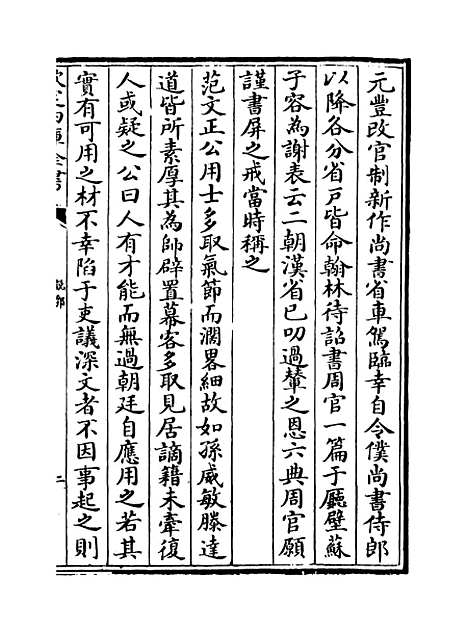 元豐改官制新作尚書省車駕臨幸自令僕尚書侍郎
以降各分省戸皆命翰林待詔書周官一篇于廳壁蘇
子容為謝表云二朝漢省已叨過輦之恩六典周官願
謹書屏之戒當時稱之
范文正公用士多取氣節而濶畧細故如孫威敏滕達
道皆所素厚其為帥辟置幕客多取見居謫籍未牽復
人或疑之公曰人有才能而無過朝廷自應用之若其
實有可用之材不幸陷于吏議深文者不因事起之則
欽定四庫全書
說郛
二